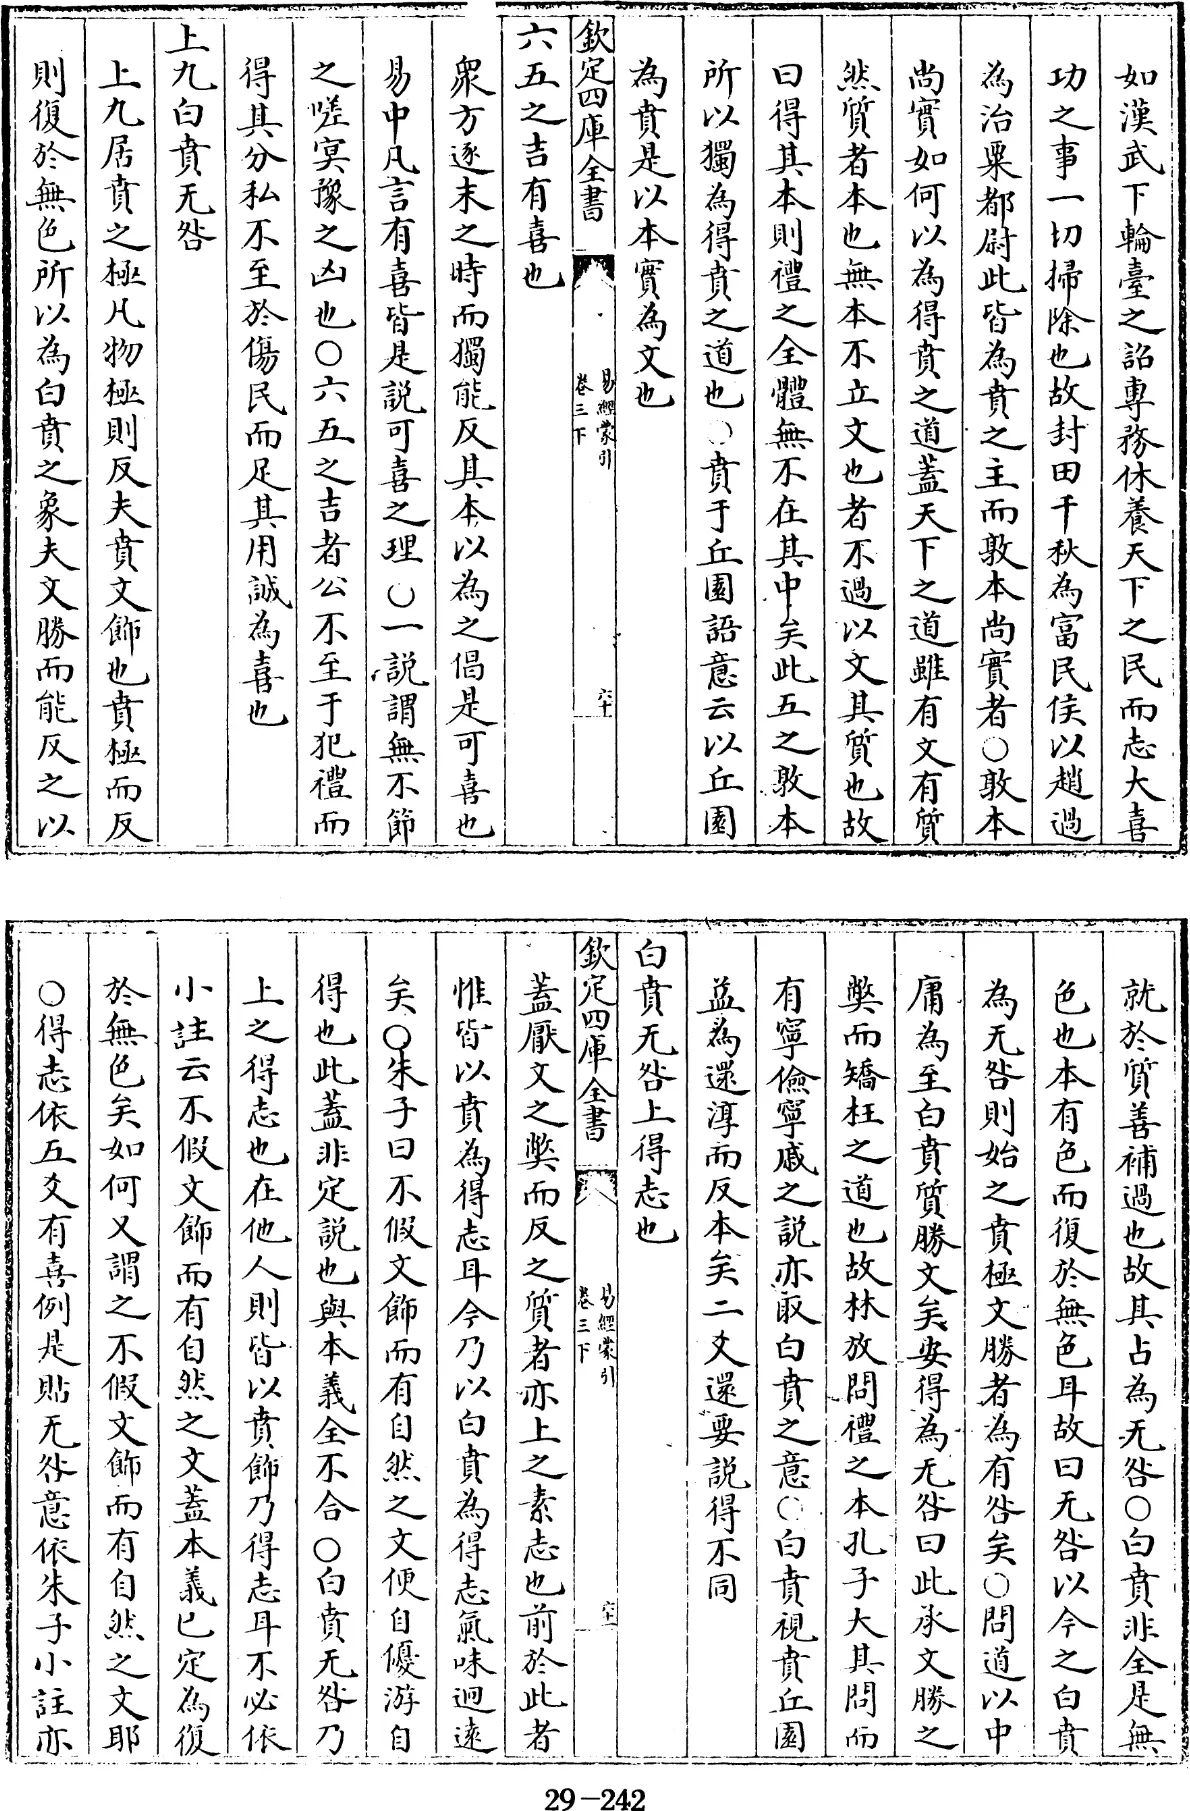 如漢武下輪臺之詔專務休養天下之民而志大喜
功之事一切掃除也故封田千秋為富民侯以趙過
為治粟都尉此皆為賁之主而敦本尚實者〇敦本
尚實如何以為得賁之道蓋天下之道雖有文有質
然質者本也無本不立文也者不過以文其質也故
曰得其本則禮之全體無不在其中矣此五之敦本
所以獨為得賁之道也〇賁于丘園語意云以丘園
為賁是以本實為文也
欽定四庫全書
易經蒙引
卷三下
六十
六五之吉有喜也
衆方逐末之時而獨能反其本以為之倡是可喜也
易中凡言有喜皆是說可喜之理〇一說謂無不節
之嗟冥豫之凶也〇六五之吉者公不至于犯禮而
得其分私不至於傷民而足其用誠為喜也
上九白賁无咎
上九居賁之極凡物極則反夫賁文飾也賁極而反
則復於無色所以為白賁之象夫文勝而能反之以
就於質善補過也故其占為无咎〇白賁非全是無
色也本有色而復於無色耳故曰无咎以今之白賁
為无咎則始之賁極文勝者為有咎矣〇問道以中
庸為至白賁質勝文矣安得為无咎曰此承文勝之
獘而矯枉之道也故林放問禮之本孔子大其問而
有寧儉寧戚之說亦取白賁之意〇白賁視賁丘園
益為還淳而反本矣二爻還要說得不同
白賁无咎上得志也
欽定四庫全書
易經蒙引
卷三下
六十一
蓋厭文之獘而反之質者亦上之素志也前於此者
惟皆以賁為得志耳今乃以白賁為得志氣味迥遠
矣〇朱子曰不假文飾而有自然之文便自優游自
得也此蓋非定說也與本義全不合〇白賁无咎乃
上之得志也在他人則皆以賁飾乃得志耳不必依
小註云不假文飾而有自然之文蓋本義已定為復
於無色矣如何又謂之不假文飾而有自然之文耶
〇得志依五爻有喜例是貼无咎意依朱子小註亦
29-242